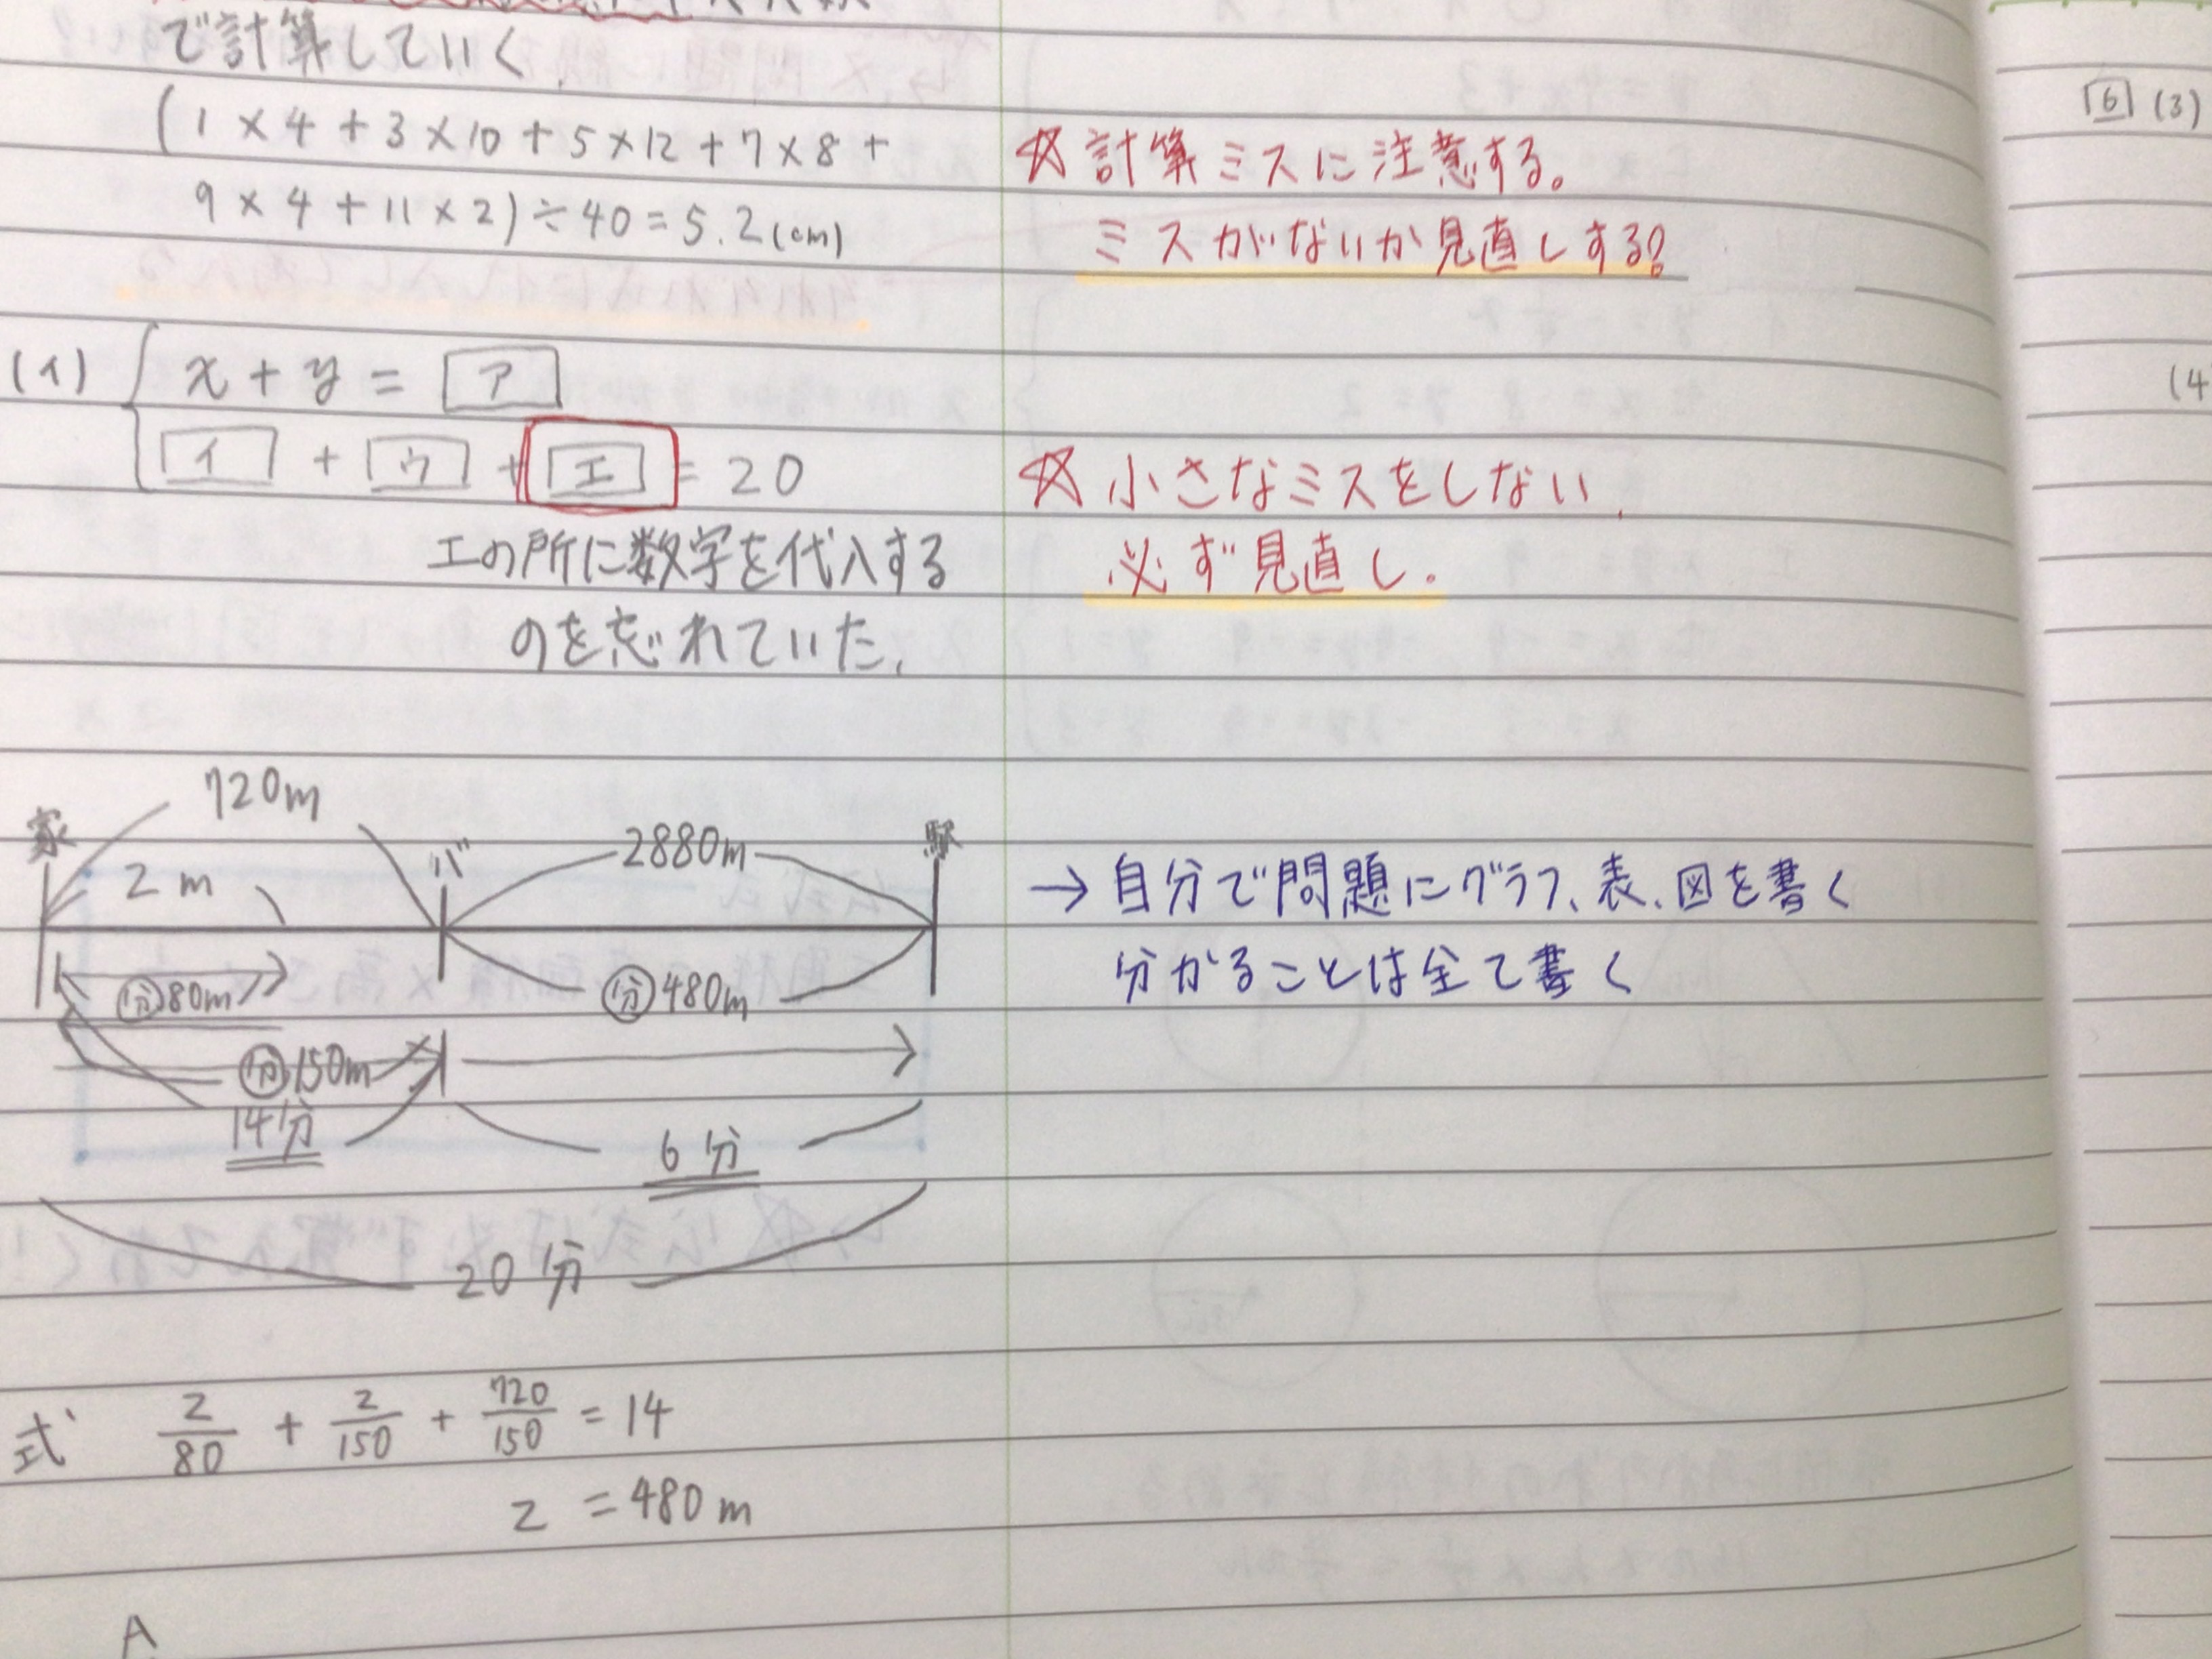 で計算していく
(1×4+3×10+5×12+7×8+
9×4+11×2)÷40=5.2(cm)
☆計算ミスに注意する。
ミスがないか見直しする?
(イ) x+y=ア
イ+ウ+エ=20
エの所に数字を代入する
のを忘れていた.
☆小さなミスをしない.
必ず見直し.
720m
家
バ
2880m
駅
z m
分80m
分480m
分150m
14分
6分
20分
→自分で問題にグラフ、表、図を書く
分かることは全て書く
式 z/80 + z/150 + 720/150 = 14
z =480m
A
6 (3)
(4